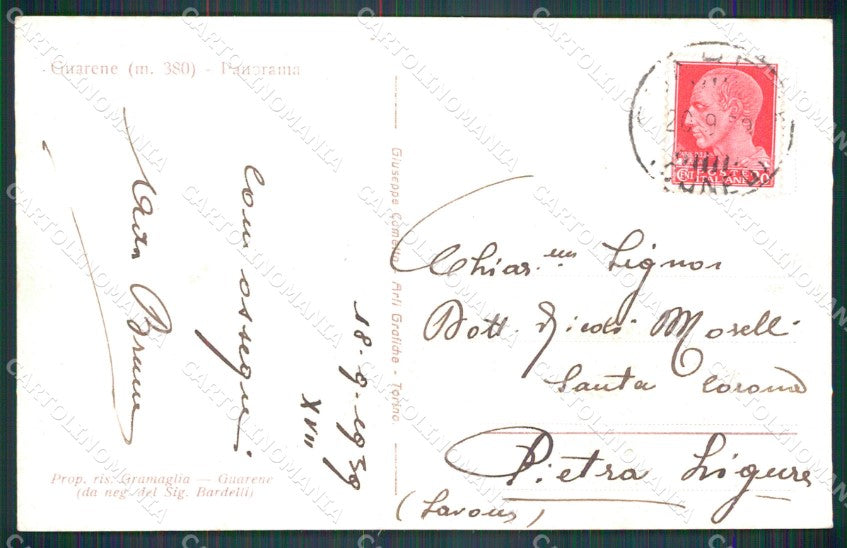 Guarene (m. 380) - Panorama
Con ossequi
18-9-1939
XVII
Prop. ris. Gramaglia — Guarene
(da neg. del Sig. Bardelli)
Giuseppe Comella - Arti Grafiche - Torino
20.9.39
CENT POSTE ITALIANE
Chiar.mo Signor
Dott. Morelli
Santa Corona
Pietra Ligure
(Savona)
CARTOLINOMANIA